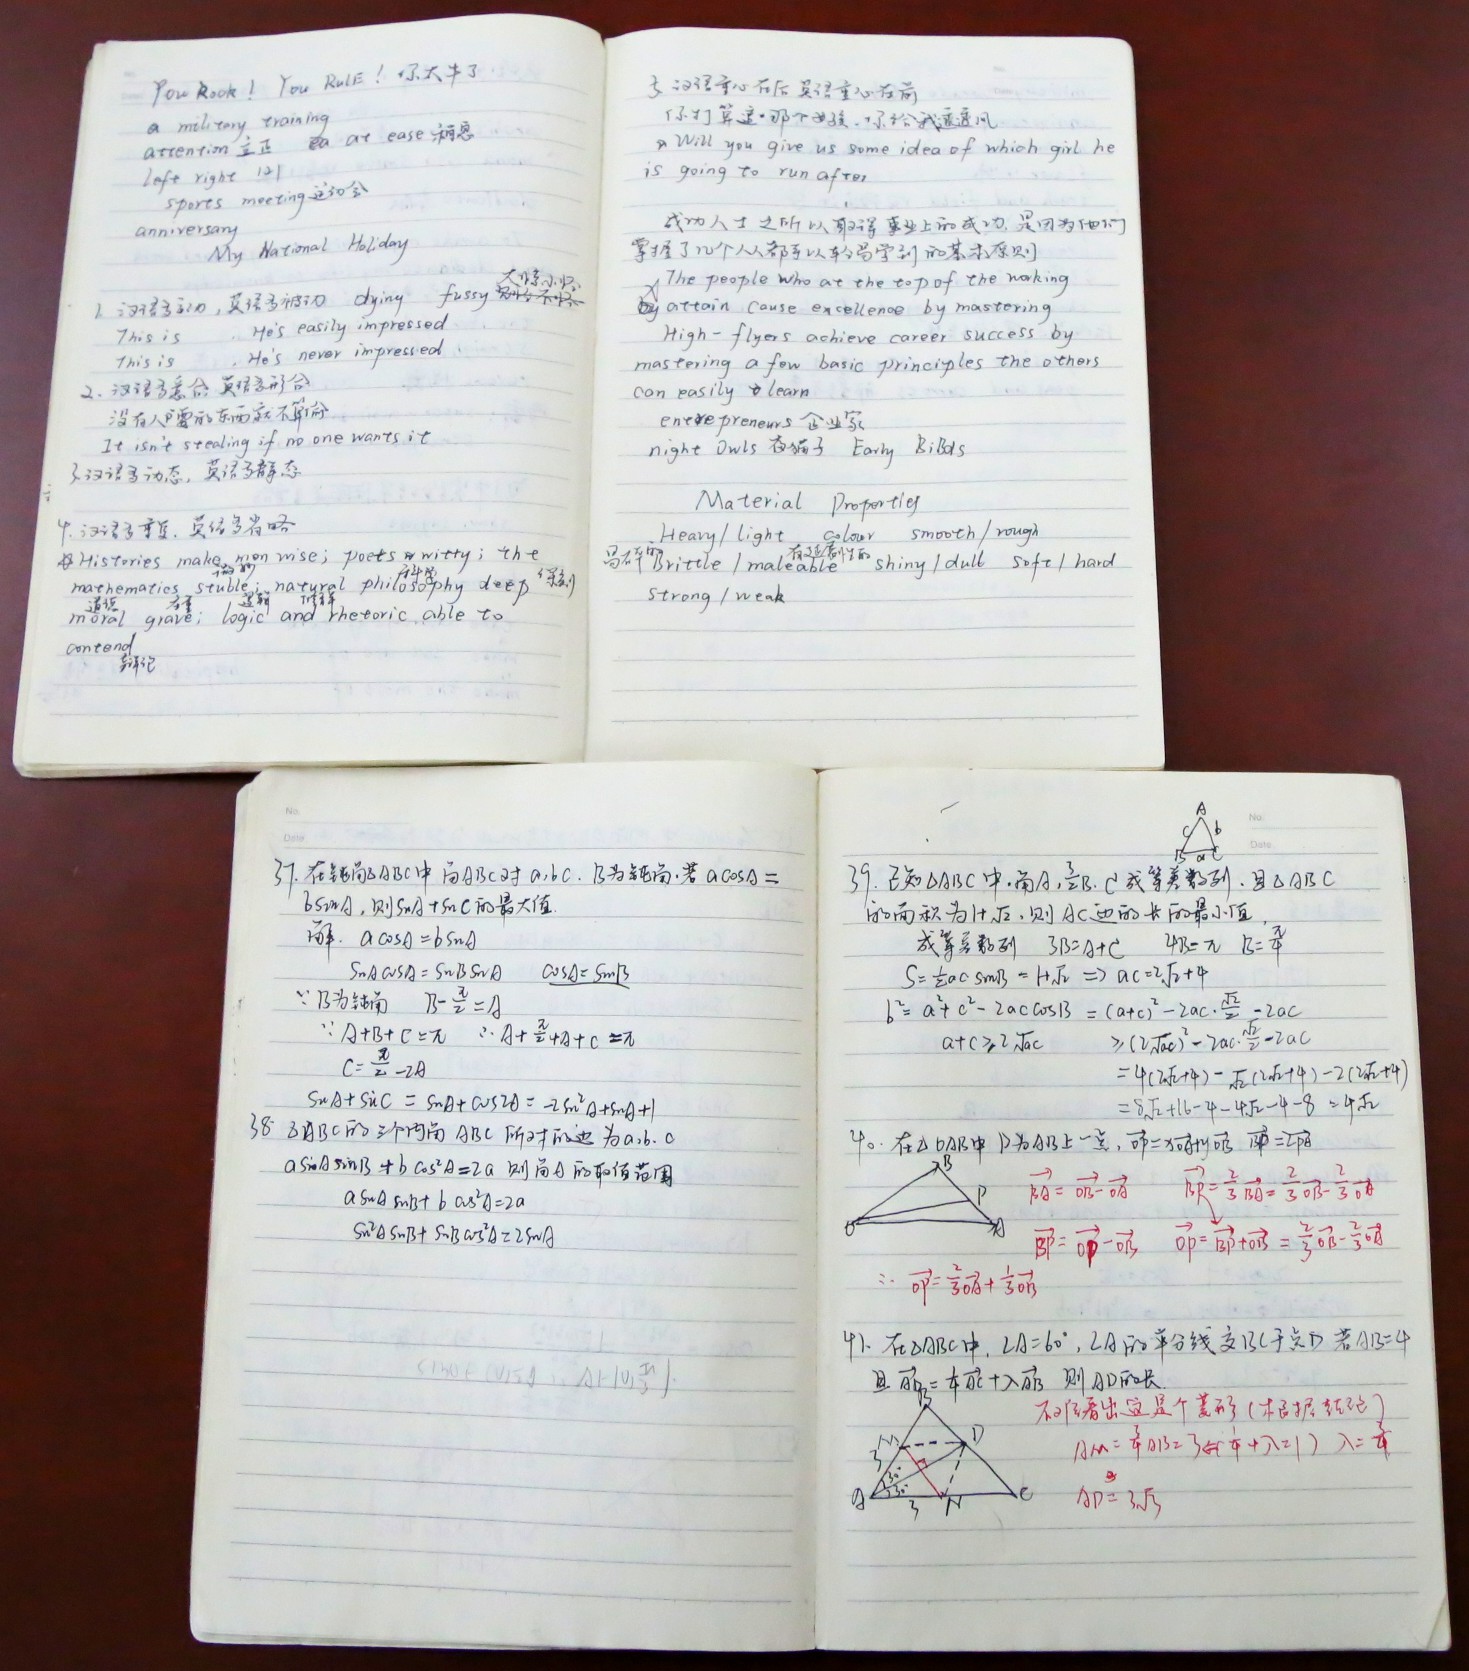 You Rock! You RulE! 你太牛了
a military training
attention 立正 at ease 稍息
left right 121
sports meeting 运动会
anniversary
My National Holiday
1. 汉语多主动, 英语多被动 dying fussy 大惊小怪
This is . He's easily impressed
This is . He's never impressed.
2. 汉语多意合 英语多形合
没有人要的东西就不算偷
It isn't stealing if no one wants it
3. 汉语多动态, 英语多静态
4. 汉语多重复, 英语多省略
Histories make men wise; poets witty; the
mathematics stuble; natural philosophy deep 深刻
科学
道德 逻辑 修辞
moral grave; logic and rhetoric able to
contend
辩论
5. 汉语重心在后 英语重心在前
你打算追哪个女孩, 你给我透透风
Will you give us some idea of which girl he
is going to run after
成功人士之所以取得事业上的成功, 是因为他们
掌握了几个人人都可以轻易学到的基本原则
The people who at the top of the working
attain cause excellence by mastering
High-flyers achieve career success by
mastering a few basic principles the others
can easily learn
entrepreneurs 企业家
night Owls 夜猫子 Early BiRds
Material Properties
Heavy/light colour smooth/rough
易碎的 Brittle / maleable 有延展性的 shiny/dull soft/hard
strong/weak
No.
Date
37. 在钝角△ABC中 角ABC对a,b,c. B为钝角. 若 acosA=
bsinA, 则sinA+sinC的最大值.
解. acosA=bsinA
sinAcosA=sinBsinA cosA=sinB
∵B为钝角 B-π/2=A
∵A+B+C=π ∴A+π/2+A+C=π
C=π/2-2A
sinA+sinC=sinA+cos2A=-2sin²A+sinA+1
38. △ABC的三个内角ABC所对的边为a,b,c
asinAsinB+bcos²A=2a 则角A的取值范围
asinAsinB+bcos²A=2a
sin²AsinB+sinBcos²A=2sinA
No.
Date.
A
c b
B a C
39. 已知△ABC中,角A, 3/2B, C成等差数列. 且△ABC
的面积为1+√2, 则AC边的长的最小值.
成等差数列 3B=A+C 4B=π B=π/4
S=1/2acsinB=1+√2 => ac=2√2+4
b²=a²+c²-2accosB=(a+c)²-2ac·√2/2-2ac
a+c≥2√ac ≥(2√ac)²-2ac·√2/2-2ac
=4(2√2+4)-√2(2√2+4)-2(2√2+4)
=8√2+16-4-4√2-4-8=4√2
40. 在△OAB中 P为AB上一点, OP=xOA+yOB BP=2PA
B
P
O A
BA=OB-OA BP=2/3BA=2/3OB-2/3OA
BP=OP-OB OP=BP+OB=2/3OB-2/3OA
∴ OP=2/3OA+1/3OB
41. 在△ABC中, ∠A=60°, ∠A的平分线交BC于点D 若AB=4
且AD=1/4AC+λAB 则AD的长.
不难看出这是个菱形(根据结论)
B
M D
3
30°
30°
A 3 N C
AM=3/4AB=3 (1/4+λ=1) λ=3/4
AD=3√3